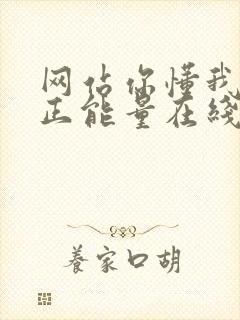 网站你懂我
正能量在线
養家口胡